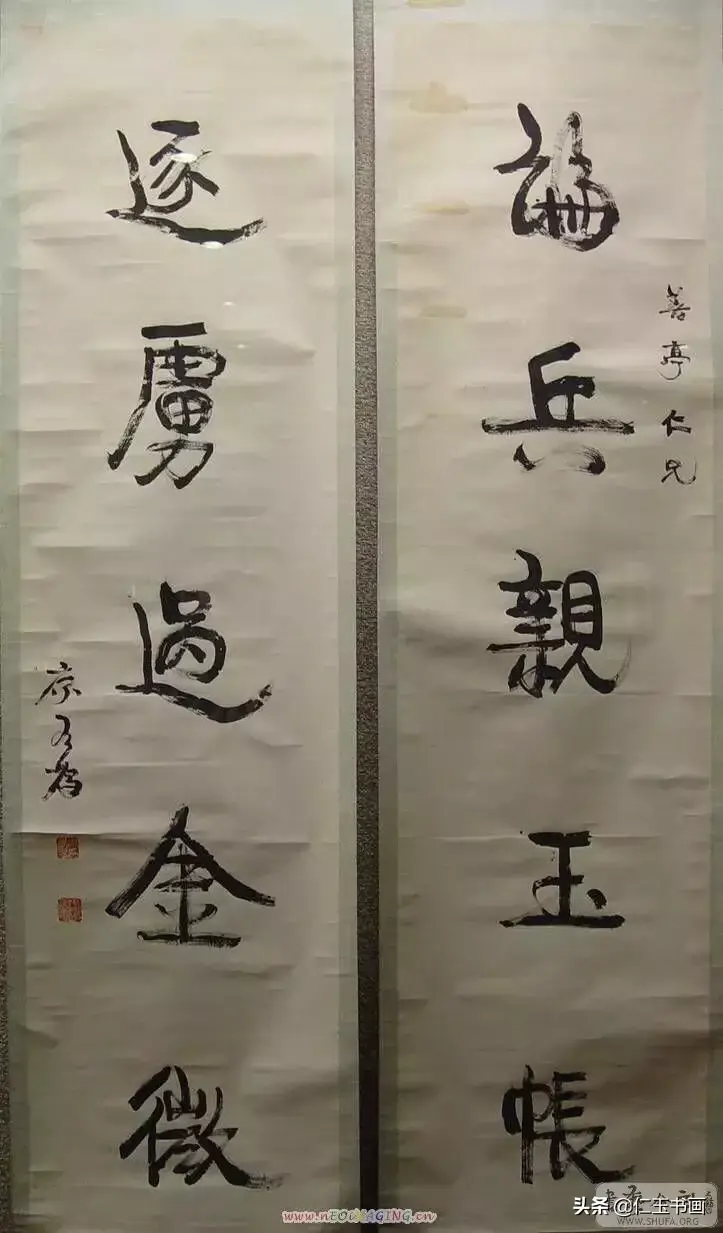 論兵親玉帳
善亭仁兄
逐虜過金微
康有為
www.nEOiMAGING.cn
头条@仁玉书画
WWW.SHUFA.ORG